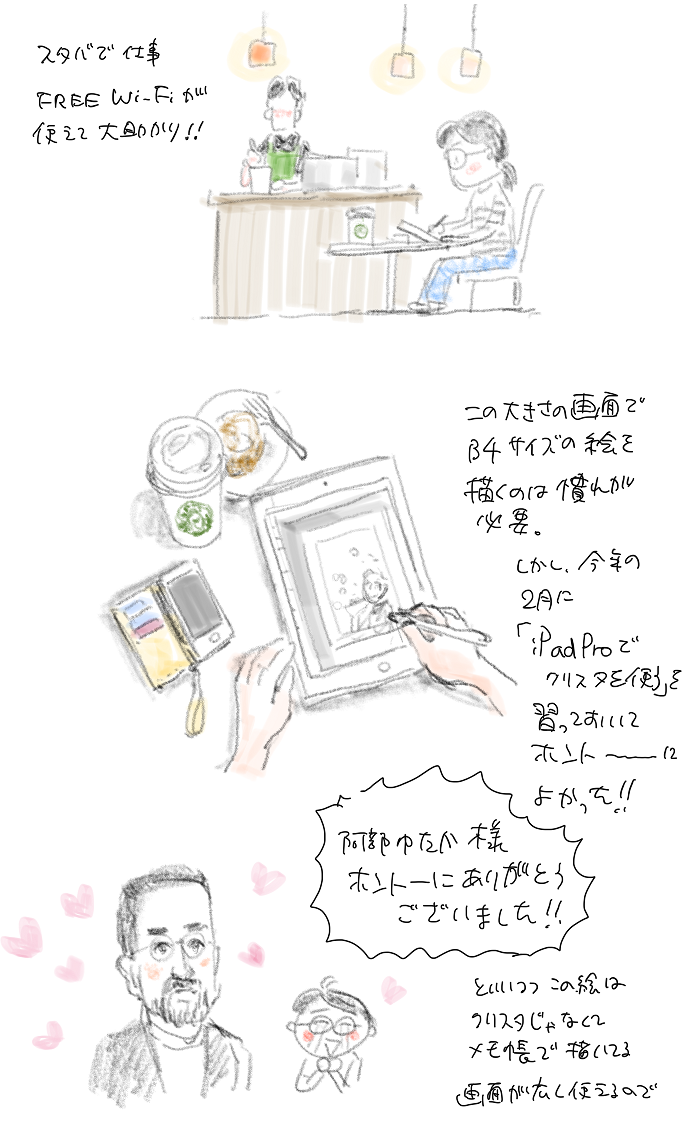 スタバで仕事
FREE Wi-Fiが
使えて大助かり!!
この大きさの画面で
B4サイズの絵を
描くのは慣れが
必要。
しかし、今年の
2月に
「iPadProで
クリスタを使う」を
習っておいて
ホントーーーに
よかった!!
阿部ゆたか様
ホントーにありがとう
ございました!!
といいつつこの絵は
クリスタじゃなくて
メモ帳で描いてる
画面が広く使えるので